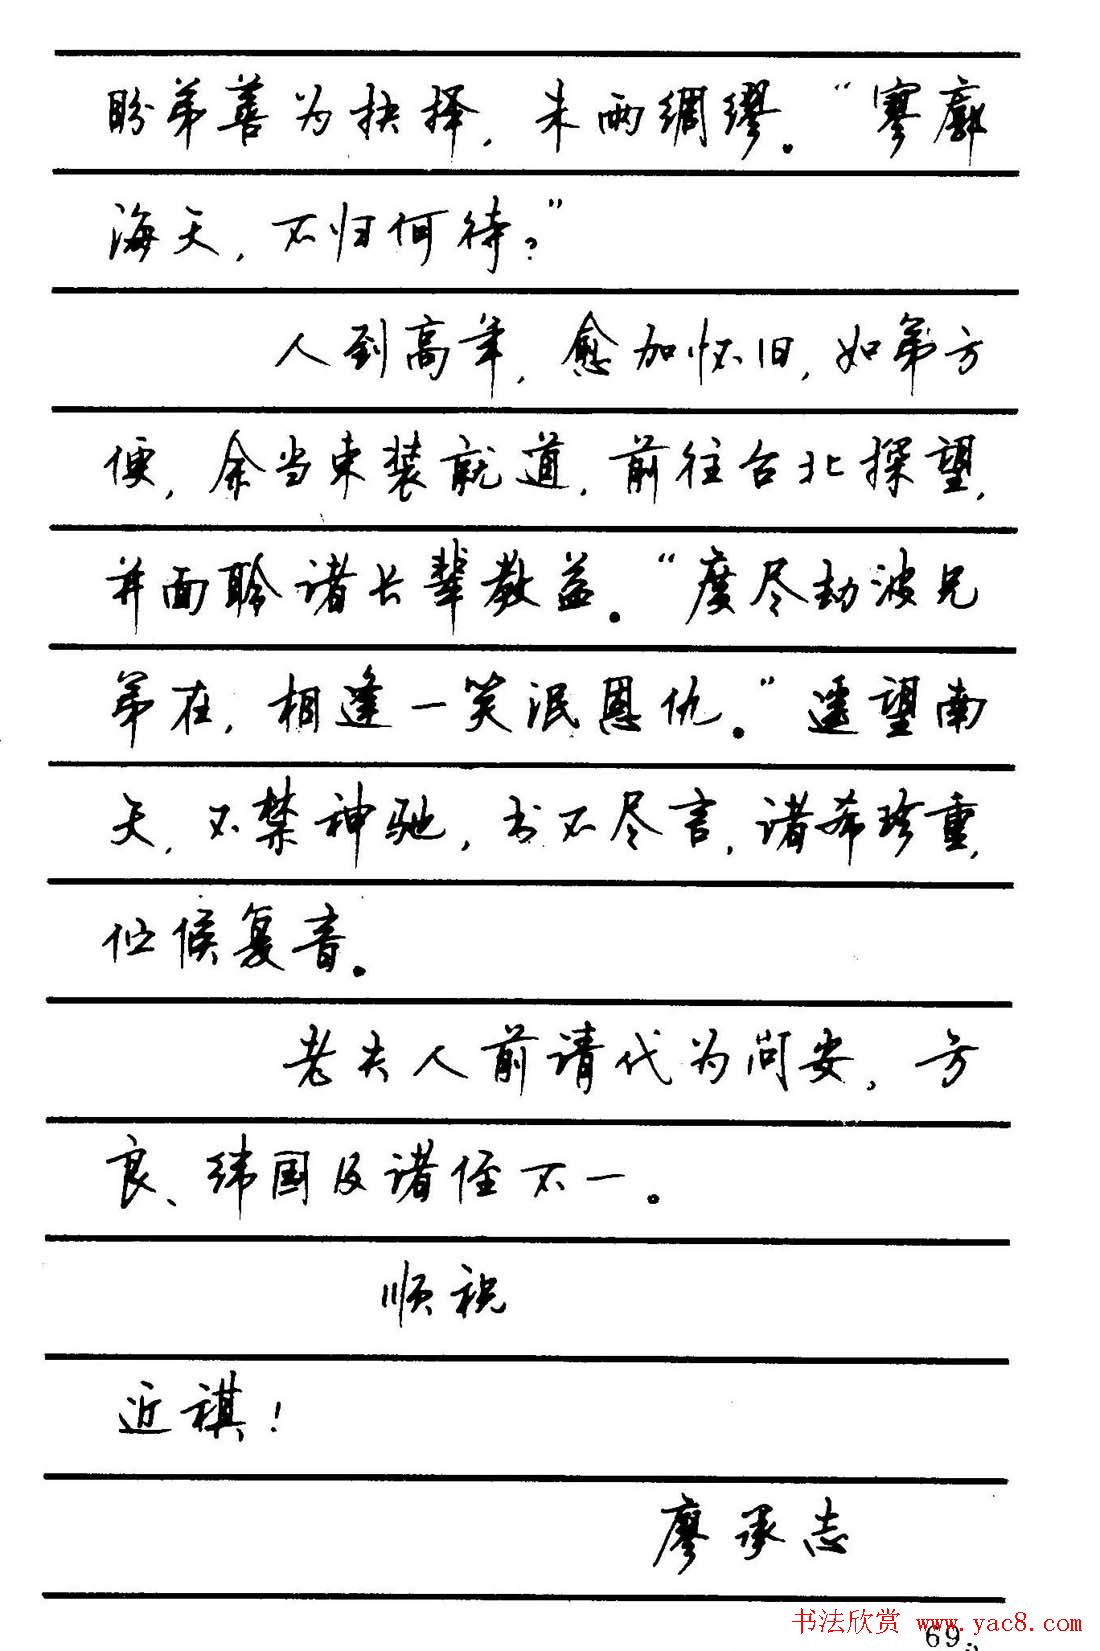 盼弟善为抉择，未雨绸缪。“寥廓
海天，不归何待？”
人到高年，愈加怀旧，如弟方
便，余当束装就道，前往台北探望，
并面聆诸长辈教益。“度尽劫波兄
弟在，相逢一笑泯恩仇。”遥望南
天，不禁神驰，书不尽言，诸希珍重，
伫候复音。
老夫人前请代为问安，方
良、纬国及诸侄不一。
顺祝
近祺！
廖承志
书法欣赏 www.yac8.com
69